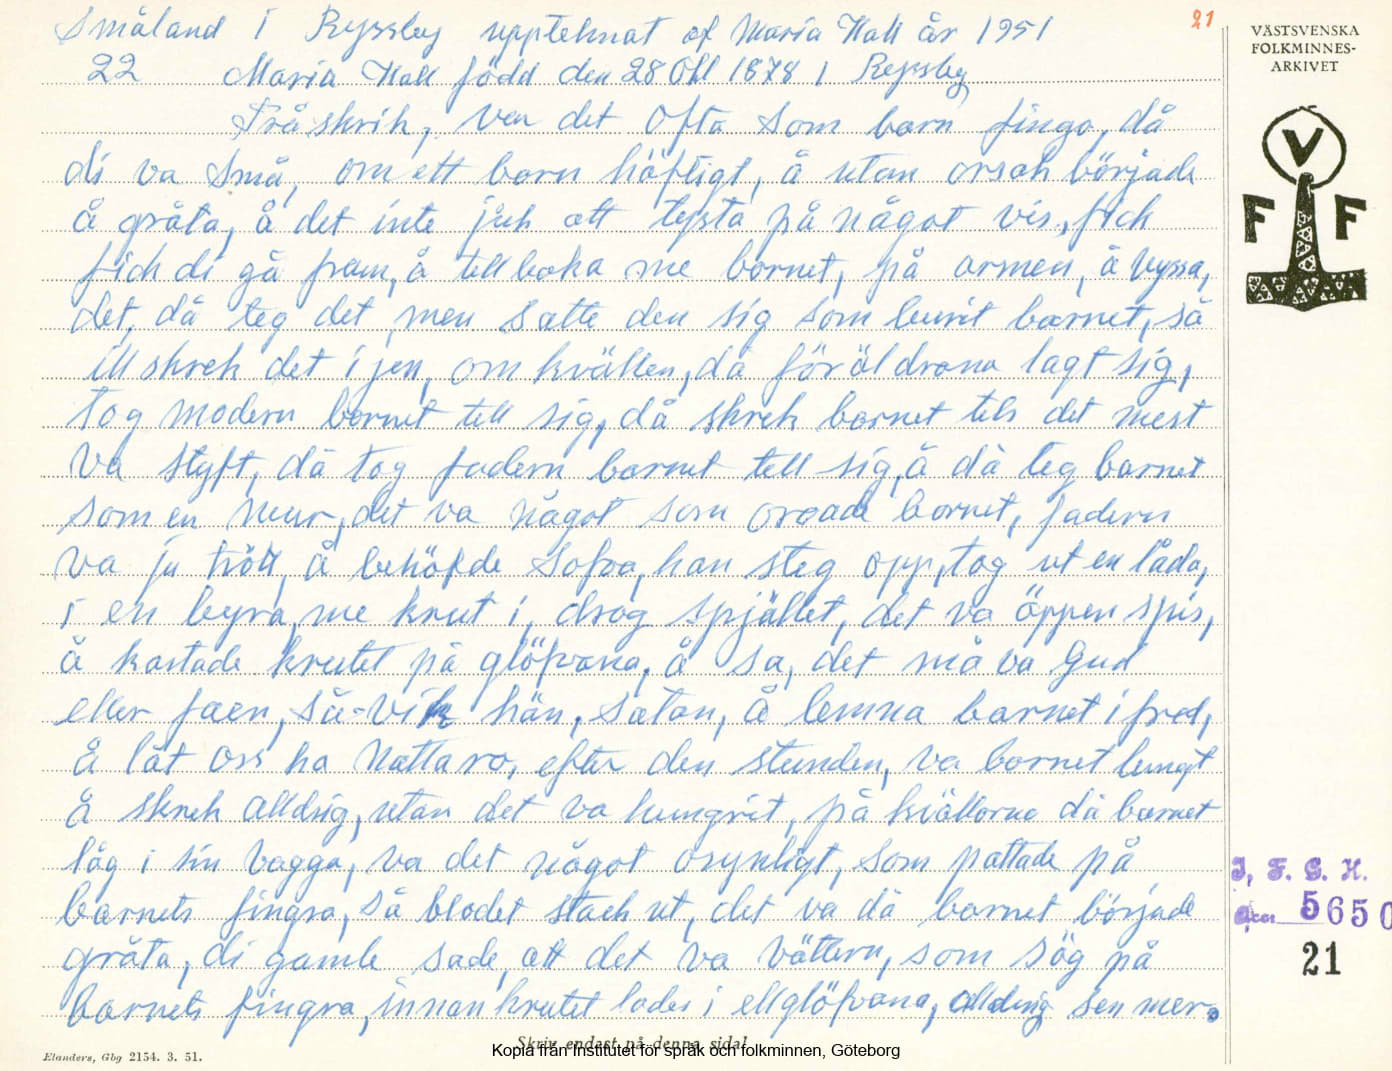 Småland i Ryssby upptecknat af Maria Hall år 1951
21
22 Maria Hall född den 28 Okt 1878 i Ryssby
Tråskrik, var det ofta som barn fingo, då
di va små, om ett barn häftigt, å utan orsak började
å gråta, å det inte jick att tysta på något vis, fick
fick di gå fram, å tellbaka me barnet, på armen, å vyssa,
det, då teg det, men satte den sig som burit barnet, så
illskrek det ijen, om kvällen, då föräldrana lagt sig,
tog modern barnet tell sig, då skrek barnet tels det mest
va styft, då tog fadern barnet tell sig, å då teg barnet
som en mur, det va något som oroade barnet, fadern
va ju trött, å behöfde sofva, han steg opp, tog ut en låda,
i en byra, me krut i, drog spjället, det va öppen spis,
å kastade krutet på glöfvana, å sa, det må va Gud
eller faen, så-vik hän, satan, å lemna barnet ifred,
å låt oss ha Nattaro, efter den stunden, va barnet lungt
å skrek alldrig, utan det va hungrit, på kvällorna då barnet
låg i sin vagga, va det något osynligt, som pattade på
barnets fingra, så blodet stack ut, det va då barnet började
gråta, di gamle sade, att det va vättern, som sög på
barnets fingra, innan krutet lades i ellglöfvana, alldrig sen mer.
VÄSTSVENSKA
FOLKMINNES-
ARKIVET
V
F F
I. F. G. H.
5650
21
Skriv endast på denna sida!
Elanders, Gbg 2154. 3. 51.
Kopia från Institutet för språk och folkminnen, Göteborg